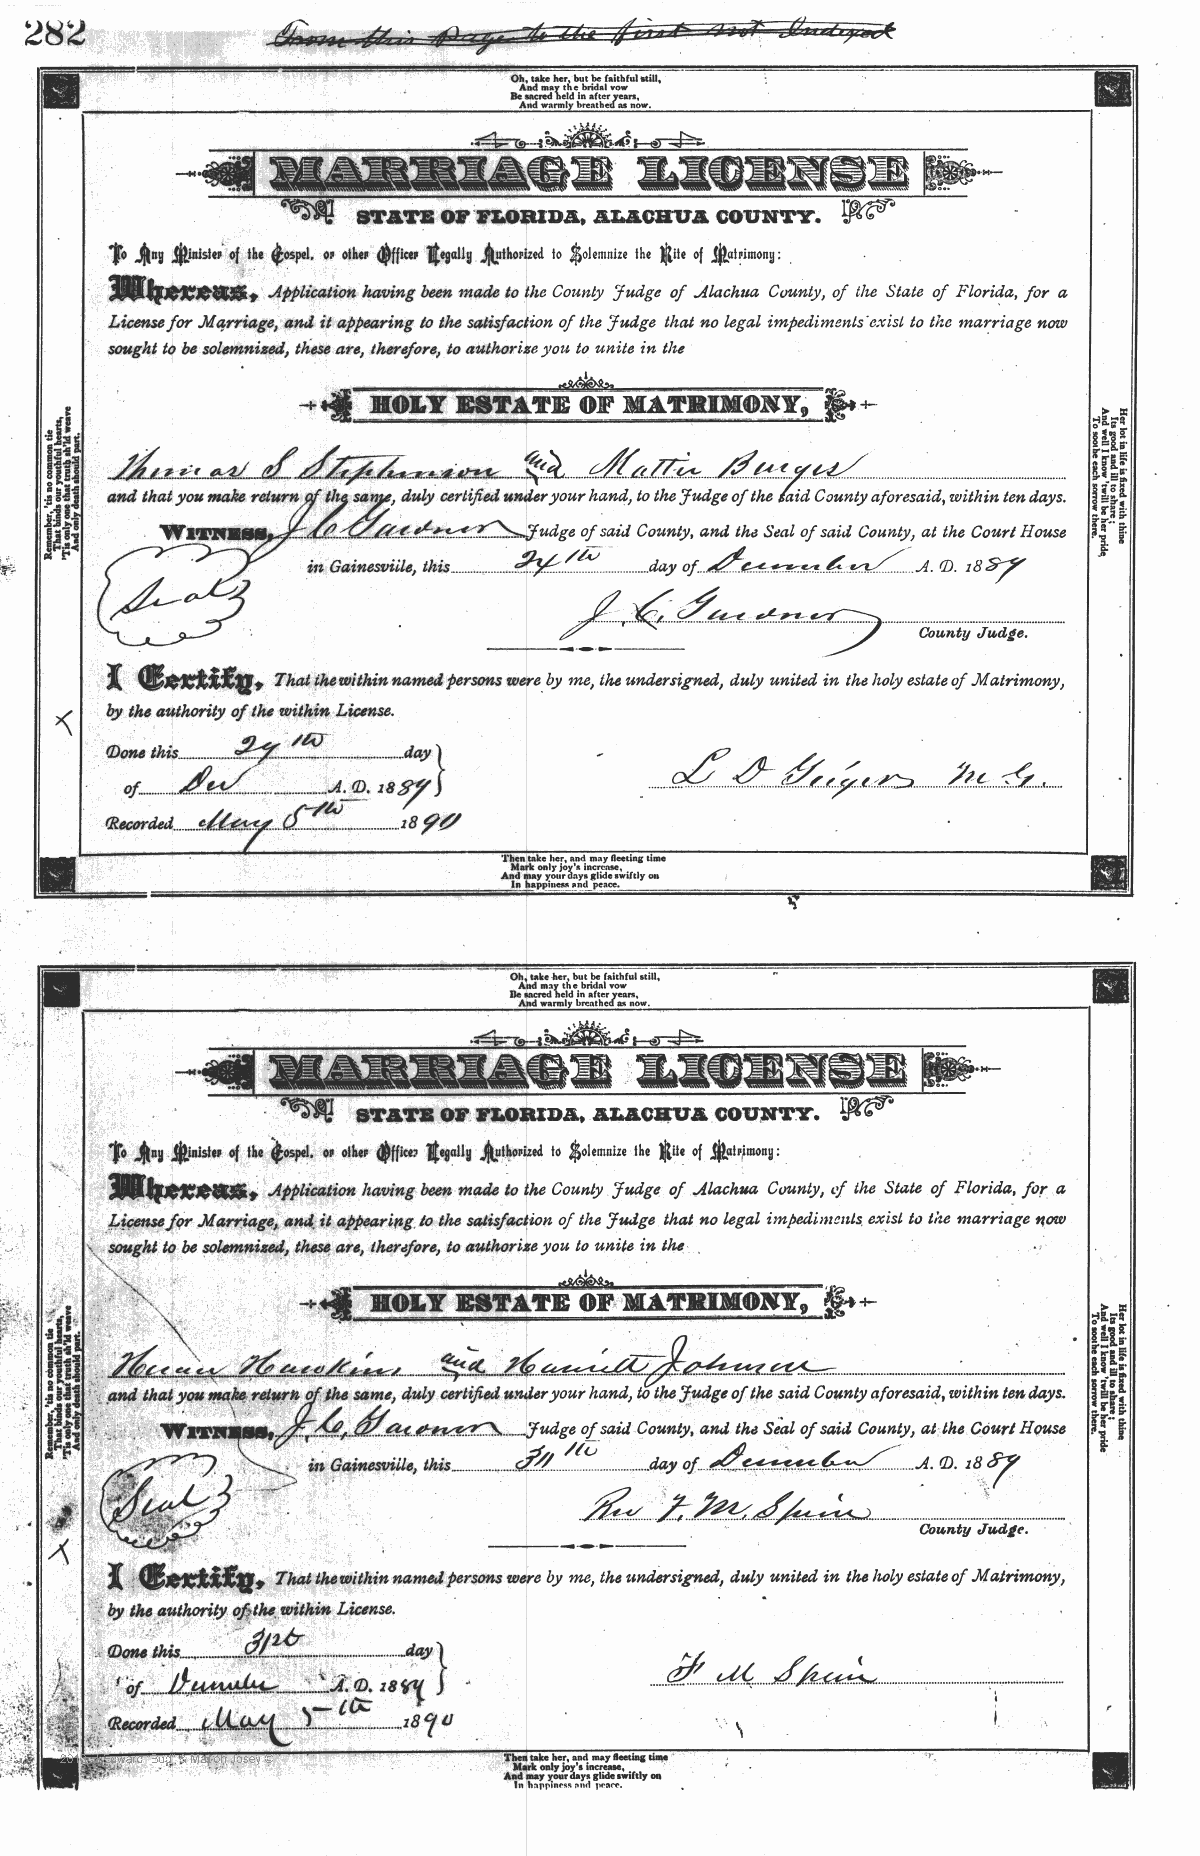 282
From this page to the first not Indexed
Oh, take her, but be faithful still,
And may the bridal vow
Be sacred held in after years,
And warmly breathed as now.
MARRIAGE LICENSE
STATE OF FLORIDA, ALACHUA COUNTY.
To Any Minister of the Gospel, or other Officer Legally Authorized to Solemnize the Rite of Matrimony:
Whereas, Application having been made to the County Judge of Alachua County, of the State of Florida, for a
License for Marriage, and it appearing to the satisfaction of the Judge that no legal impediments exist to the marriage now
sought to be solemnized, these are, therefore, to authorize you to unite in the
HOLY ESTATE OF MATRIMONY,
Thomas S Stephenson and Mattie Burges
and that you make return of the same, duly certified under your hand, to the Judge of the said County aforesaid, within ten days.
WITNESS, J. C. Gardner Judge of said County, and the Seal of said County, at the Court House
in Gainesville, this 24th day of December A. D. 1889
Seal
J. C. Gardner
County Judge.
I Certify, That the within named persons were by me, the undersigned, duly united in the holy estate of Matrimony,
by the authority of the within License.
Done this 29th day
of Dec A. D. 1889
L D Geiger M. G.
Recorded May 5th 1890
Remember, 'tis no common tie
That binds our youthful hearts,
'Tis only one that truth sh'ld weave
And only death should part.
Her lot in life is fixed with thine
Its good and ill to share;
And well I know 'twill be her pride
To soothe each sorrow there.
Then take her, and may fleeting time
Mark only joy's increase,
And may your days glide swiftly on
In happiness and peace.
Oh, take her, but be faithful still,
And may the bridal vow
Be sacred held in after years,
And warmly breathed as now.
MARRIAGE LICENSE
STATE OF FLORIDA, ALACHUA COUNTY.
To Any Minister of the Gospel, or other Officer Legally Authorized to Solemnize the Rite of Matrimony:
Whereas, Application having been made to the County Judge of Alachua County, of the State of Florida, for a
License for Marriage, and it appearing to the satisfaction of the Judge that no legal impediments exist to the marriage now
sought to be solemnized, these are, therefore, to authorize you to unite in the
HOLY ESTATE OF MATRIMONY,
Hawkins and Harriett Johnson
and that you make return of the same, duly certified under your hand, to the Judge of the said County aforesaid, within ten days.
WITNESS, J. C. Gardner Judge of said County, and the Seal of said County, at the Court House
in Gainesville, this 30th day of December A. D. 1889
Seal
Rev F. M. Spein
County Judge.
I Certify, That the within named persons were by me, the undersigned, duly united in the holy estate of Matrimony,
by the authority of the within License.
Done this 31st day
of December A. D. 1889
F M Spein
Recorded May 5th 1890
Remember, 'tis no common tie
That binds our youthful hearts,
'Tis only one that truth sh'ld weave
And only death should part.
Her lot in life is fixed with thine
Its good and ill to share;
And well I know 'twill be her pride
To soothe each sorrow there.
Then take her, and may fleeting time
Mark only joy's increase,
And may your days glide swiftly on
In happiness and peace.